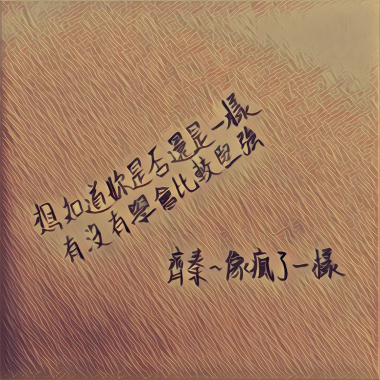 想知道妳是否還是一樣
有沒有學會比較堅強
齊秦~像瘋了一樣